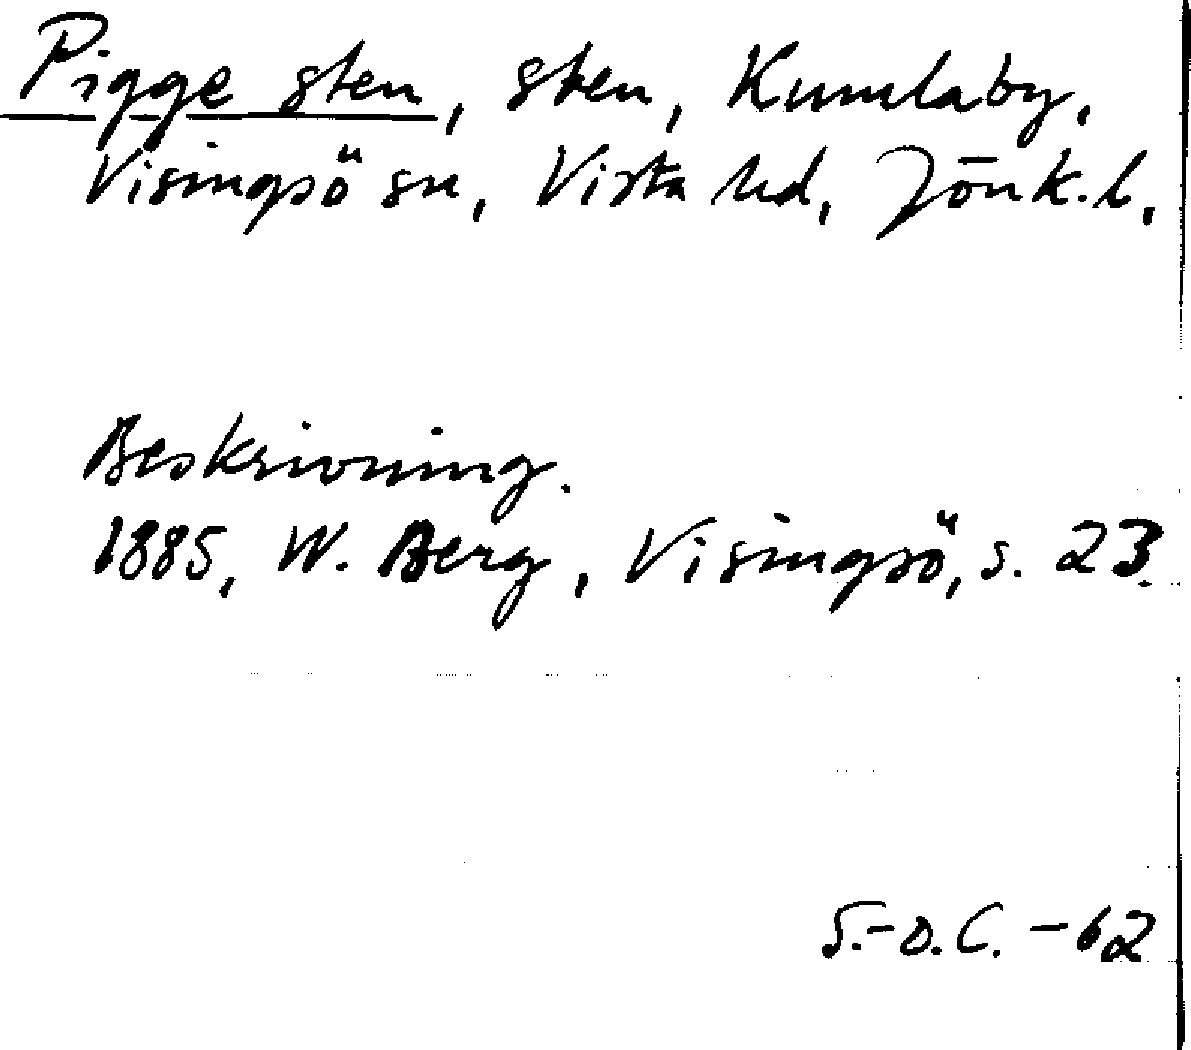 Pigge sten, sten, Kumlaby,
Visingsö sn, Vista hd, Jönk.l.
Beskrivning.
1885, W. Berg, Visingsö, s. 23.
S.-O.C. -62